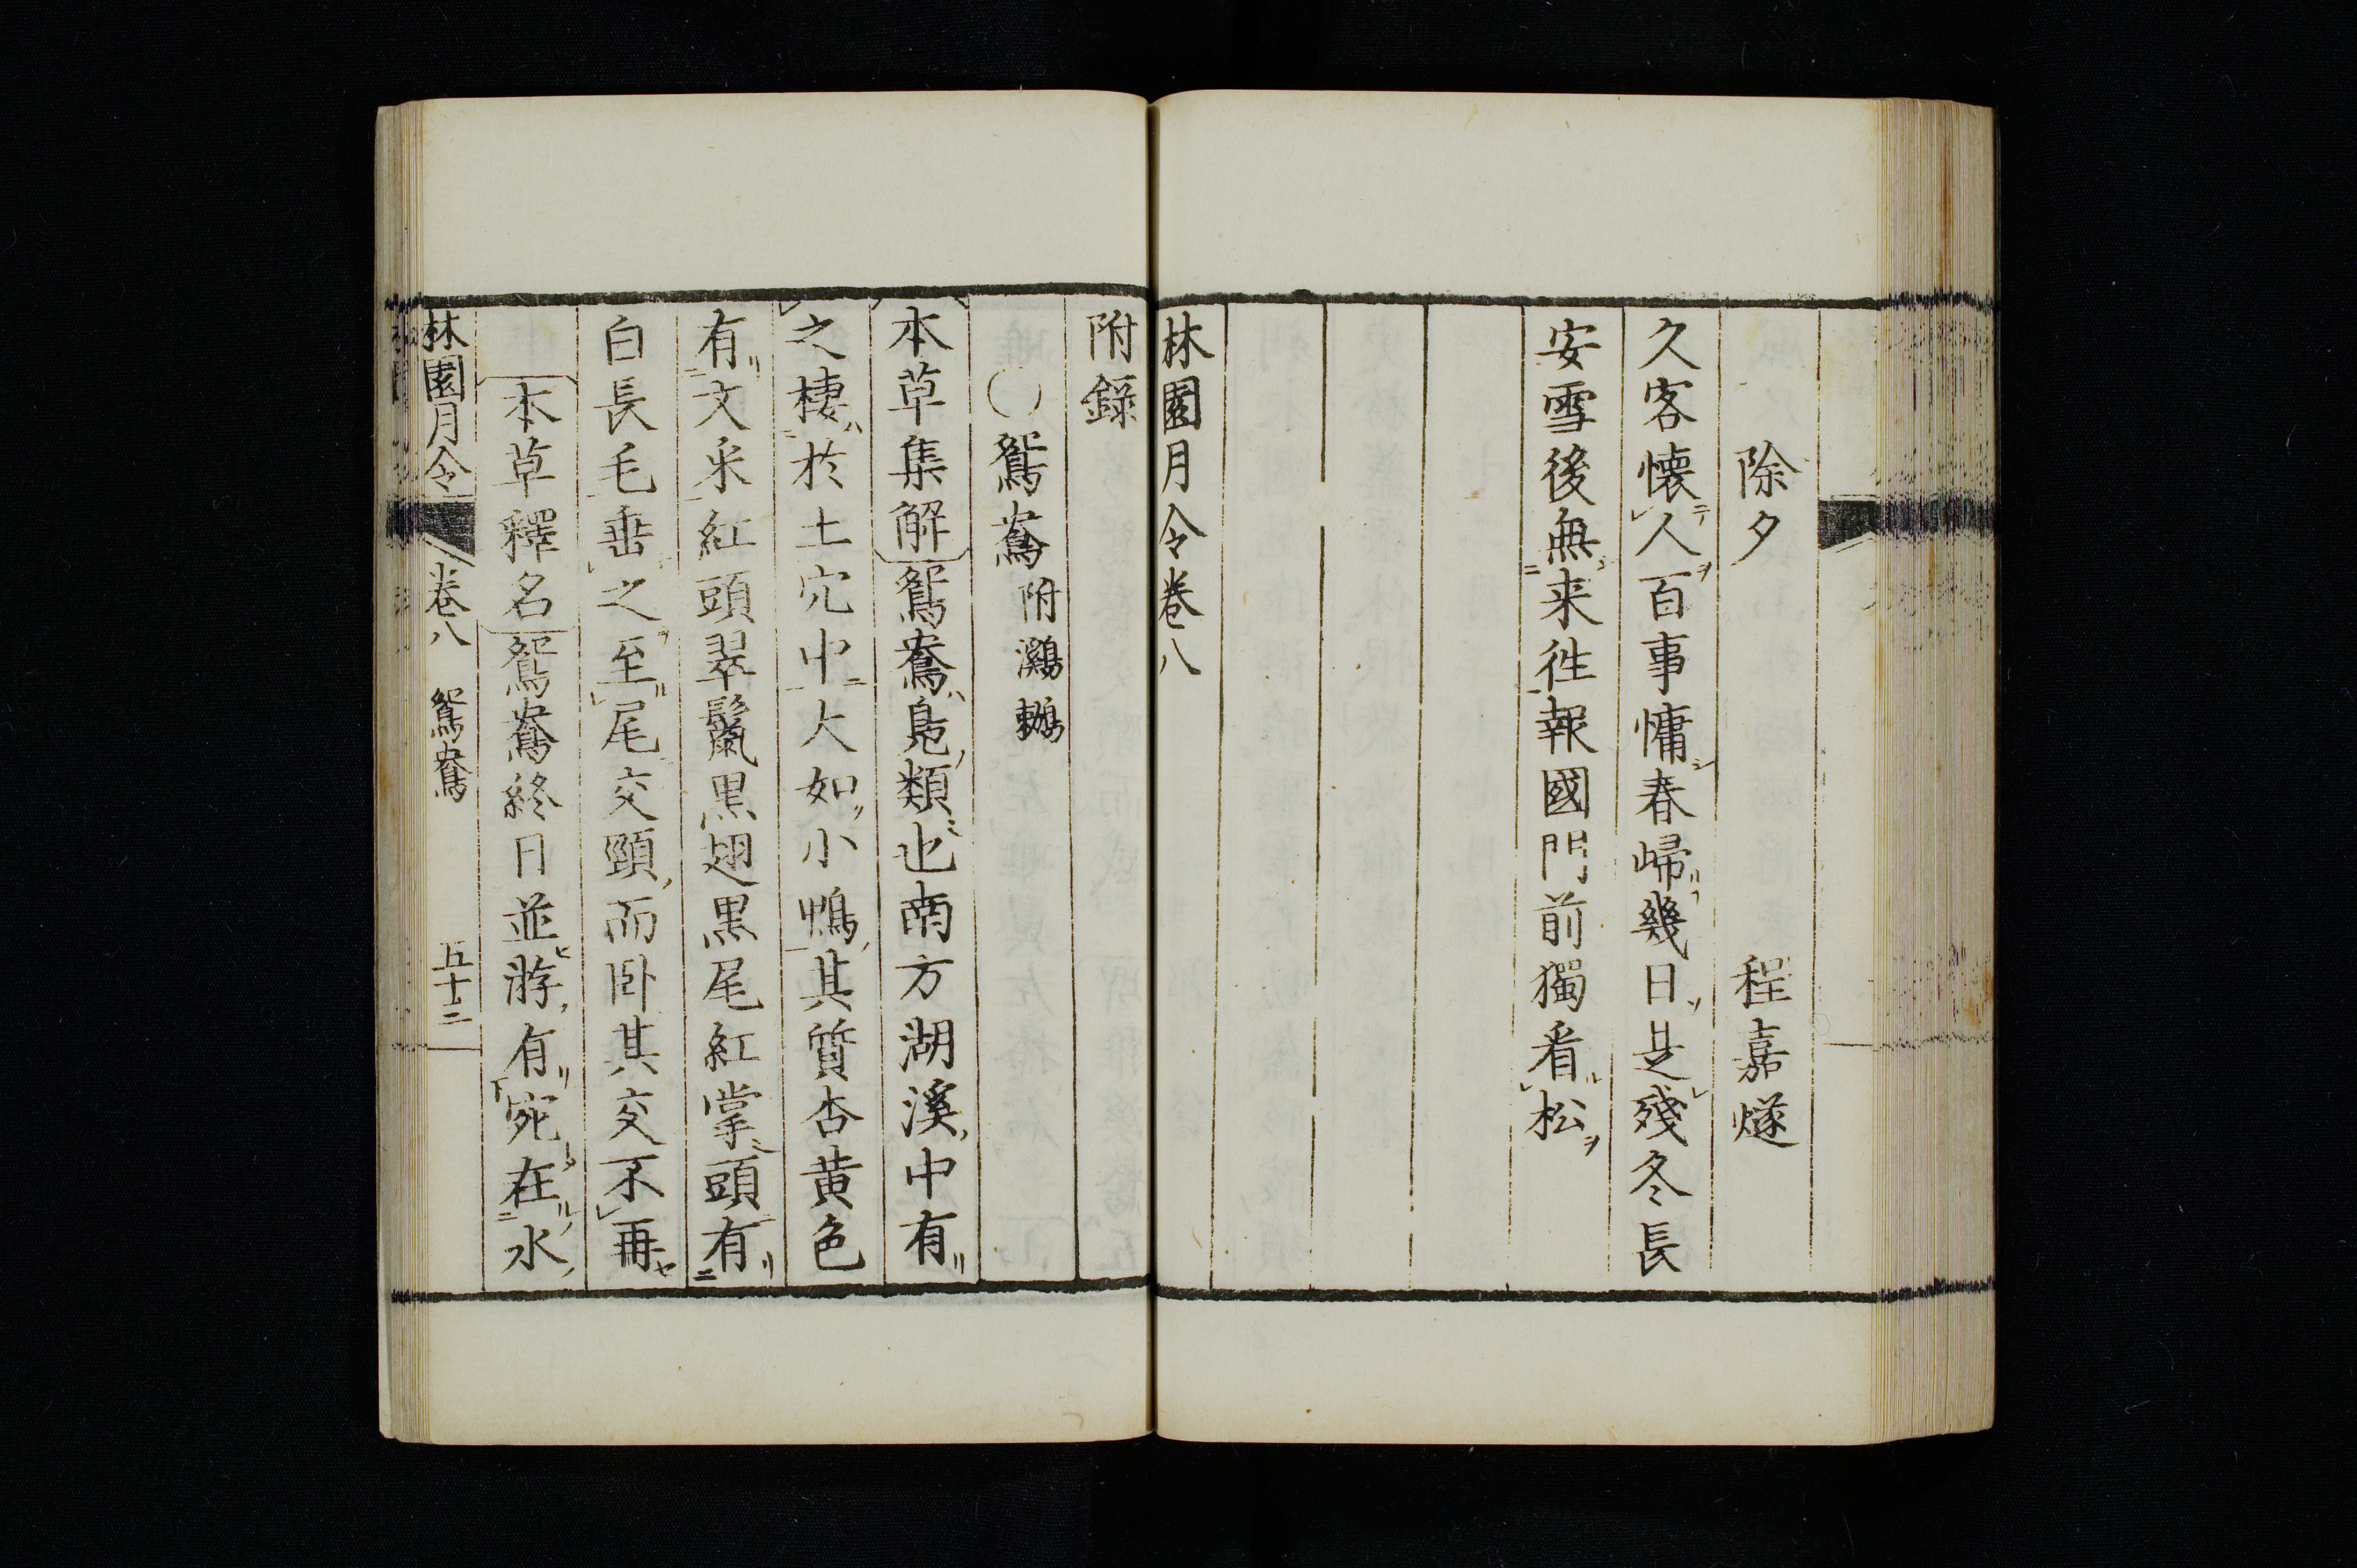 除夕　程嘉燧
久客懐人百事慵春帰幾日是殘冬長
安雪後無来徃報國門前獨看松
林園月令卷八
附錄
〇鴛鴦附鸂鷘
本草集解鴛鴦鳬類也南方湖溪中有
之棲於土穴中大如小鴨其質杏黄色
有文釆紅頭翠鬣黒翅黒尾紅掌頭有
白長毛垂之至尾交頸而卧其交不再
本草釋名鴛鴦終日並游有宛在水
林園月令　卷八　鴛鴦　五十二